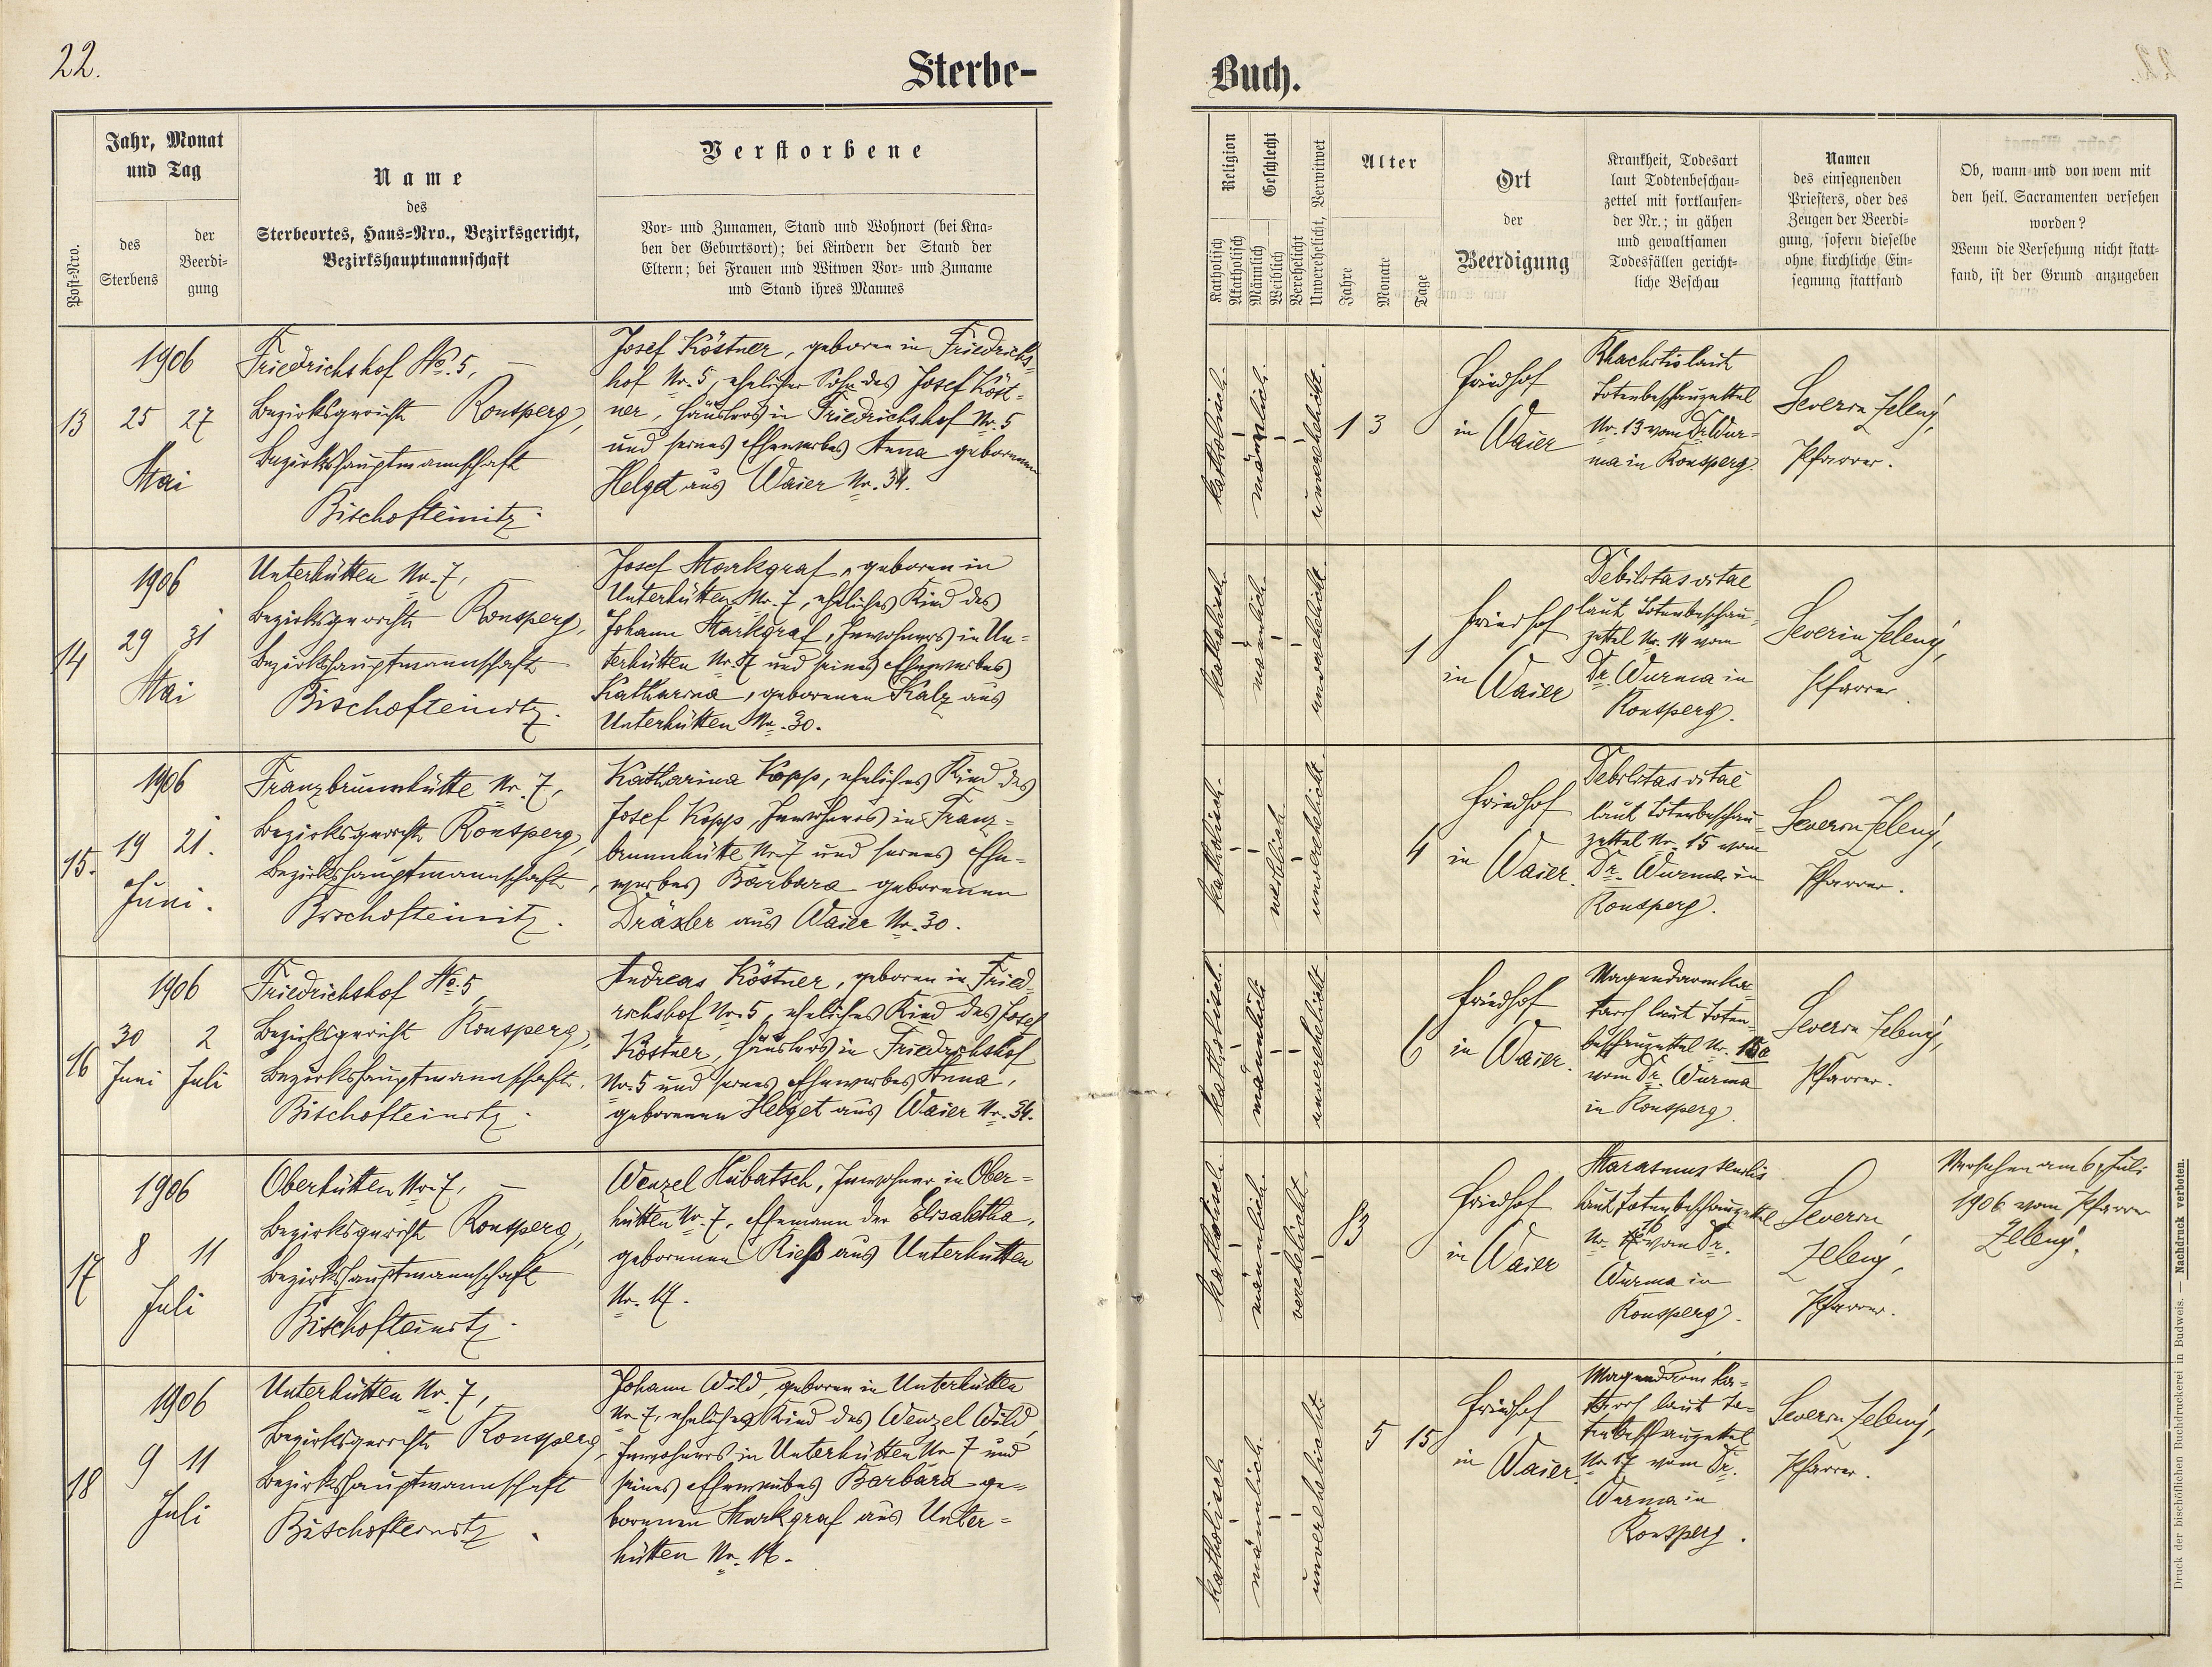 22.
Sterbe-
Buch.
Post-Nro.
Jahr, Monat
und Tag
des
Sterbens
der
Beerdi-
gung
Name
des
Sterbeortes, Haus-Nro., Bezirksgericht,
Bezirkshauptmannschaft
Verstorbene
Vor- und Zunamen, Stand und Wohnort (bei Kna-
ben der Geburtsort); bei Kindern der Stand der
Eltern; bei Frauen und Witwen Vor- und Zuname
und Stand ihres Mannes
Religion
Katholisch
Akatholisch
Geschlecht
Männlich
Weiblich
Verehelicht
Unverehelicht, Verwitwet
Alter
Jahre
Monate
Tage
Ort
der
Beerdigung
Krankheit, Todesart
laut Todtenbeschau-
zettel mit fortlaufen-
der Nr.; in gähen
und gewaltsamen
Todesfällen gericht-
liche Beschau
Namen
des einsegnenden
Priesters, oder des
Zeugen der Beerdi-
gung, sofern dieselbe
ohne kirchliche Ein-
segnung stattfand
Ob, wann und von wem mit
den heil. Sacramenten versehen
worden?
Wenn die Versehung nicht statt-
fand, ist der Grund anzugeben
13
1906
25 27
Mai
Friedrichshof No. 5,
Bezirksgericht Ronsperg,
Bezirkshauptmannschaft
Bischofteinitz.
Josef Köstner, geboren in Friedrichs-
hof Nr. 5, ehelicher Sohn des Josef Köst-
ner, Häuslers in Friedrichshof Nr. 5
und seines Eheweibes Anna geborenen
Helget aus Waier Nr. 34.
katholisch.
männlich.
unverehelicht.
1 3
Friedhof
in Waier
Rhachitis laut
Totenbeschauzettel
Nr. 13 vom Dr. Wur-
ma in Ronsperg.
Severin Zelený,
Pfarrer.
14
1906
29 31
Mai
Unterhütten Nr. 7,
Bezirksgericht Ronsperg,
Bezirkshauptmannschaft
Bischofteinitz.
Josef Markgraf, geboren in
Unterhütten Nr. 7, eheliches Kind des
Johann Markgraf, Inwohners in Un-
terhütten Nr. 7 und seines Eheweibes
Katharina, geborenen Kalz aus
Unterhütten Nr. 30.
katholisch.
männlich.
unverehelicht.
1
Friedhof
in Waier
Debilitas vitae
laut Totenbeschau-
zettel Nr. 14 vom
Dr. Wurma in
Ronsperg.
Severin Zelený,
Pfarrer.
15.
1906
19 21.
Juni.
Franzbrunnhütte Nr. 7,
Bezirksgericht Ronsperg,
Bezirkshauptmannschaft,
Bischofteinitz.
Katharina Kopp, eheliches Kind des
Josef Kopp, Inwohners in Franz-
brunnhütte Nr. 7 und seines Ehe-
weibes Barbara geborenen
Dräxler aus Waier Nr. 30.
katholisch.
weiblich.
unverehelicht.
4
Friedhof
in Waier.
Debilitas vitae
laut Totenbeschau-
zettel Nr. 15 vom
Dr. Wurma in
Ronsperg.
Severin Zelený,
Pfarrer.
16
1906
30 2
Juni Juli
Friedrichshof No. 5,
Bezirksgericht Ronsperg,
Bezirkshauptmannschaft.
Bischofteinitz.
Andreas Köstner, geboren in Fried-
richshof Nr. 5, eheliches Kind des Josef
Köstner, Häuslers in Friedrichshof
Nr. 5 und seines Eheweibes Anna,
geborenen Helget aus Waier Nr. 34.
katholisch.
männlich
unverehelicht.
6
Friedhof
in Waier.
Magendarmka-
tarrh laut Toten-
beschauzettel Nr. 15a
vom Dr. Wurma
in Ronsperg.
Severin Zelený,
Pfarrer.
17
1906
8 11
Juli
Oberhütten Nr. 7,
Bezirksgericht Ronsperg,
Bezirkshauptmannschaft
Bischofteinitz.
Wenzel Hubatsch, Inwohner in Ober-
hütten Nr. 7, Ehemann der Elisabetha,
geborenen Rieß aus Unterhütten
Nr. 17.
katholisch.
männlich.
verehelicht.
83
Friedhof
in Waier
Marasmus senilis
laut Totenbeschauzettel
Nr. 16 vom Dr.
Wurma in
Ronsperg.
Severin
Zelený,
Pfarrer.
Versehen am 6. Juli
1906 vom Pfarrer
Zelený.
18
1906
9 11
Juli
Unterhütten Nr. 7,
Bezirksgericht Ronsperg,
Bezirkshauptmannschaft
Bischofteinitz.
Johann Wild, geboren in Unterhütten
Nr. 7, eheliches Kind des Wenzel Wild,
Inwohners in Unterhütten Nr. 7 und
seines Eheweibes Barbara ge-
borenen Markgraf aus Unter-
hütten Nr. 16.
katholisch.
männlich.
unverehelicht.
5 15
Friedhof
in Waier.
Magendarmka-
tarrh laut To-
tenbeschauzettel
Nr. 17 vom Dr.
Wurma in
Ronsperg.
Severin Zelený,
Pfarrer.
Druck der bischöflichen Buchdruckerei in Budweis. — Nachdruck verboten.